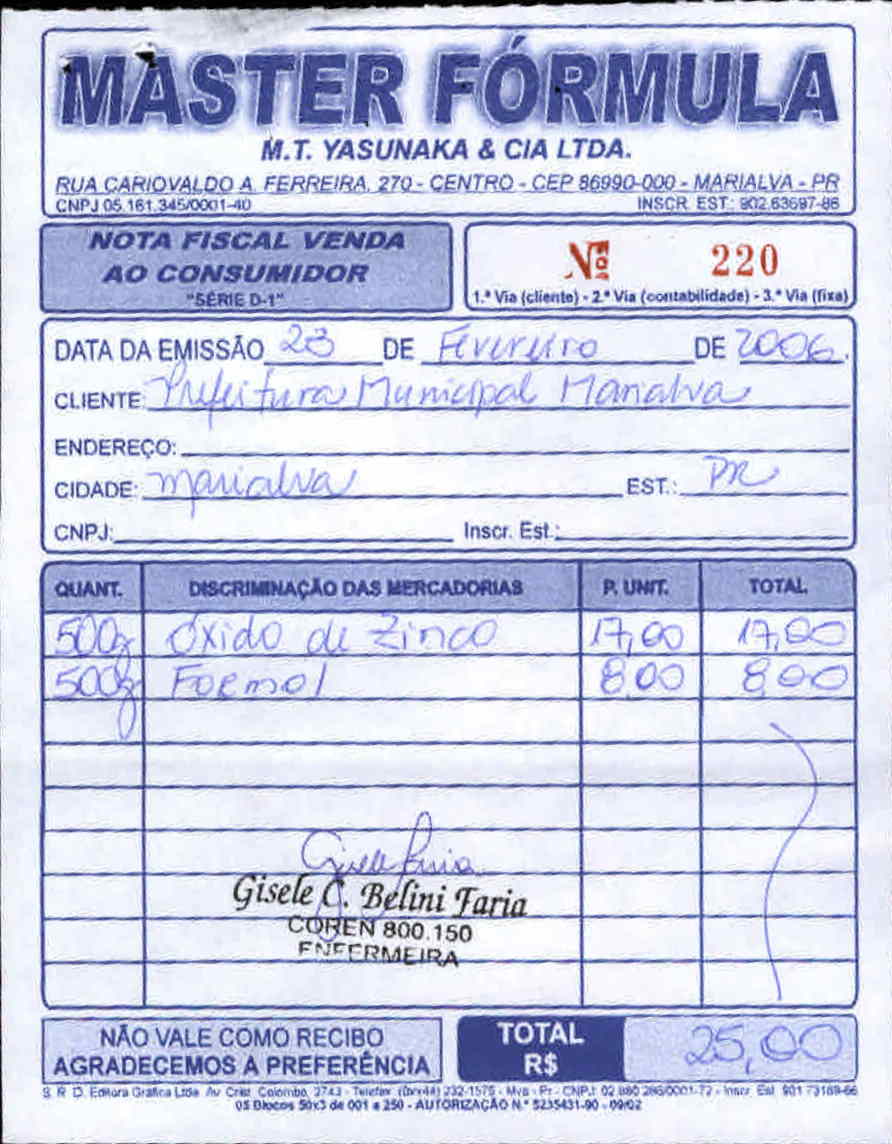 MASTER FÓRMULA
M.T. YASUNAKA & CIA LTDA.
RUA CARIOVALDO A. FERREIRA, 270 - CENTRO - CEP 86990-000 - MARIALVA - PR
CNPJ 05.161.345/0001-40 INSCR. EST.: 902.63697-86
NOTA FISCAL VENDA
AO CONSUMIDOR
"SÉRIE D-1"
Nº 220
1.ª Via (cliente) - 2.ª Via (contabilidade) - 3.ª Via (fixa)
DATA DA EMISSÃO 23 DE Fevereiro DE 2006.
CLIENTE: Prefeitura Municipal Marialva
ENDEREÇO:
CIDADE: Marialva EST.: PR
CNPJ: Inscr. Est.:
QUANT. DISCRIMINAÇÃO DAS MERCADORIAS P. UNIT. TOTAL
500g Óxido de Zinco 17,00 17,00
500g Formol 8,00 8,00
Gisele Faria
Gisele C. Belini Faria
COREN 800.150
ENFERMEIRA
NÃO VALE COMO RECIBO
AGRADECEMOS A PREFERÊNCIA
TOTAL
R$ 25,00
S. R. D. Editora Gráfica Ltda Av. Crist. Colombo, 2743 - Telefax (0xx44) 232-1575 - Mva - Pr - CNPJ: 02.980.286/0001-72 - Inscr. Est. 901.73189-66
05 Blocos 50x3 de 001 a 250 - AUTORIZAÇÃO N.º 5235431-90 - 09/02